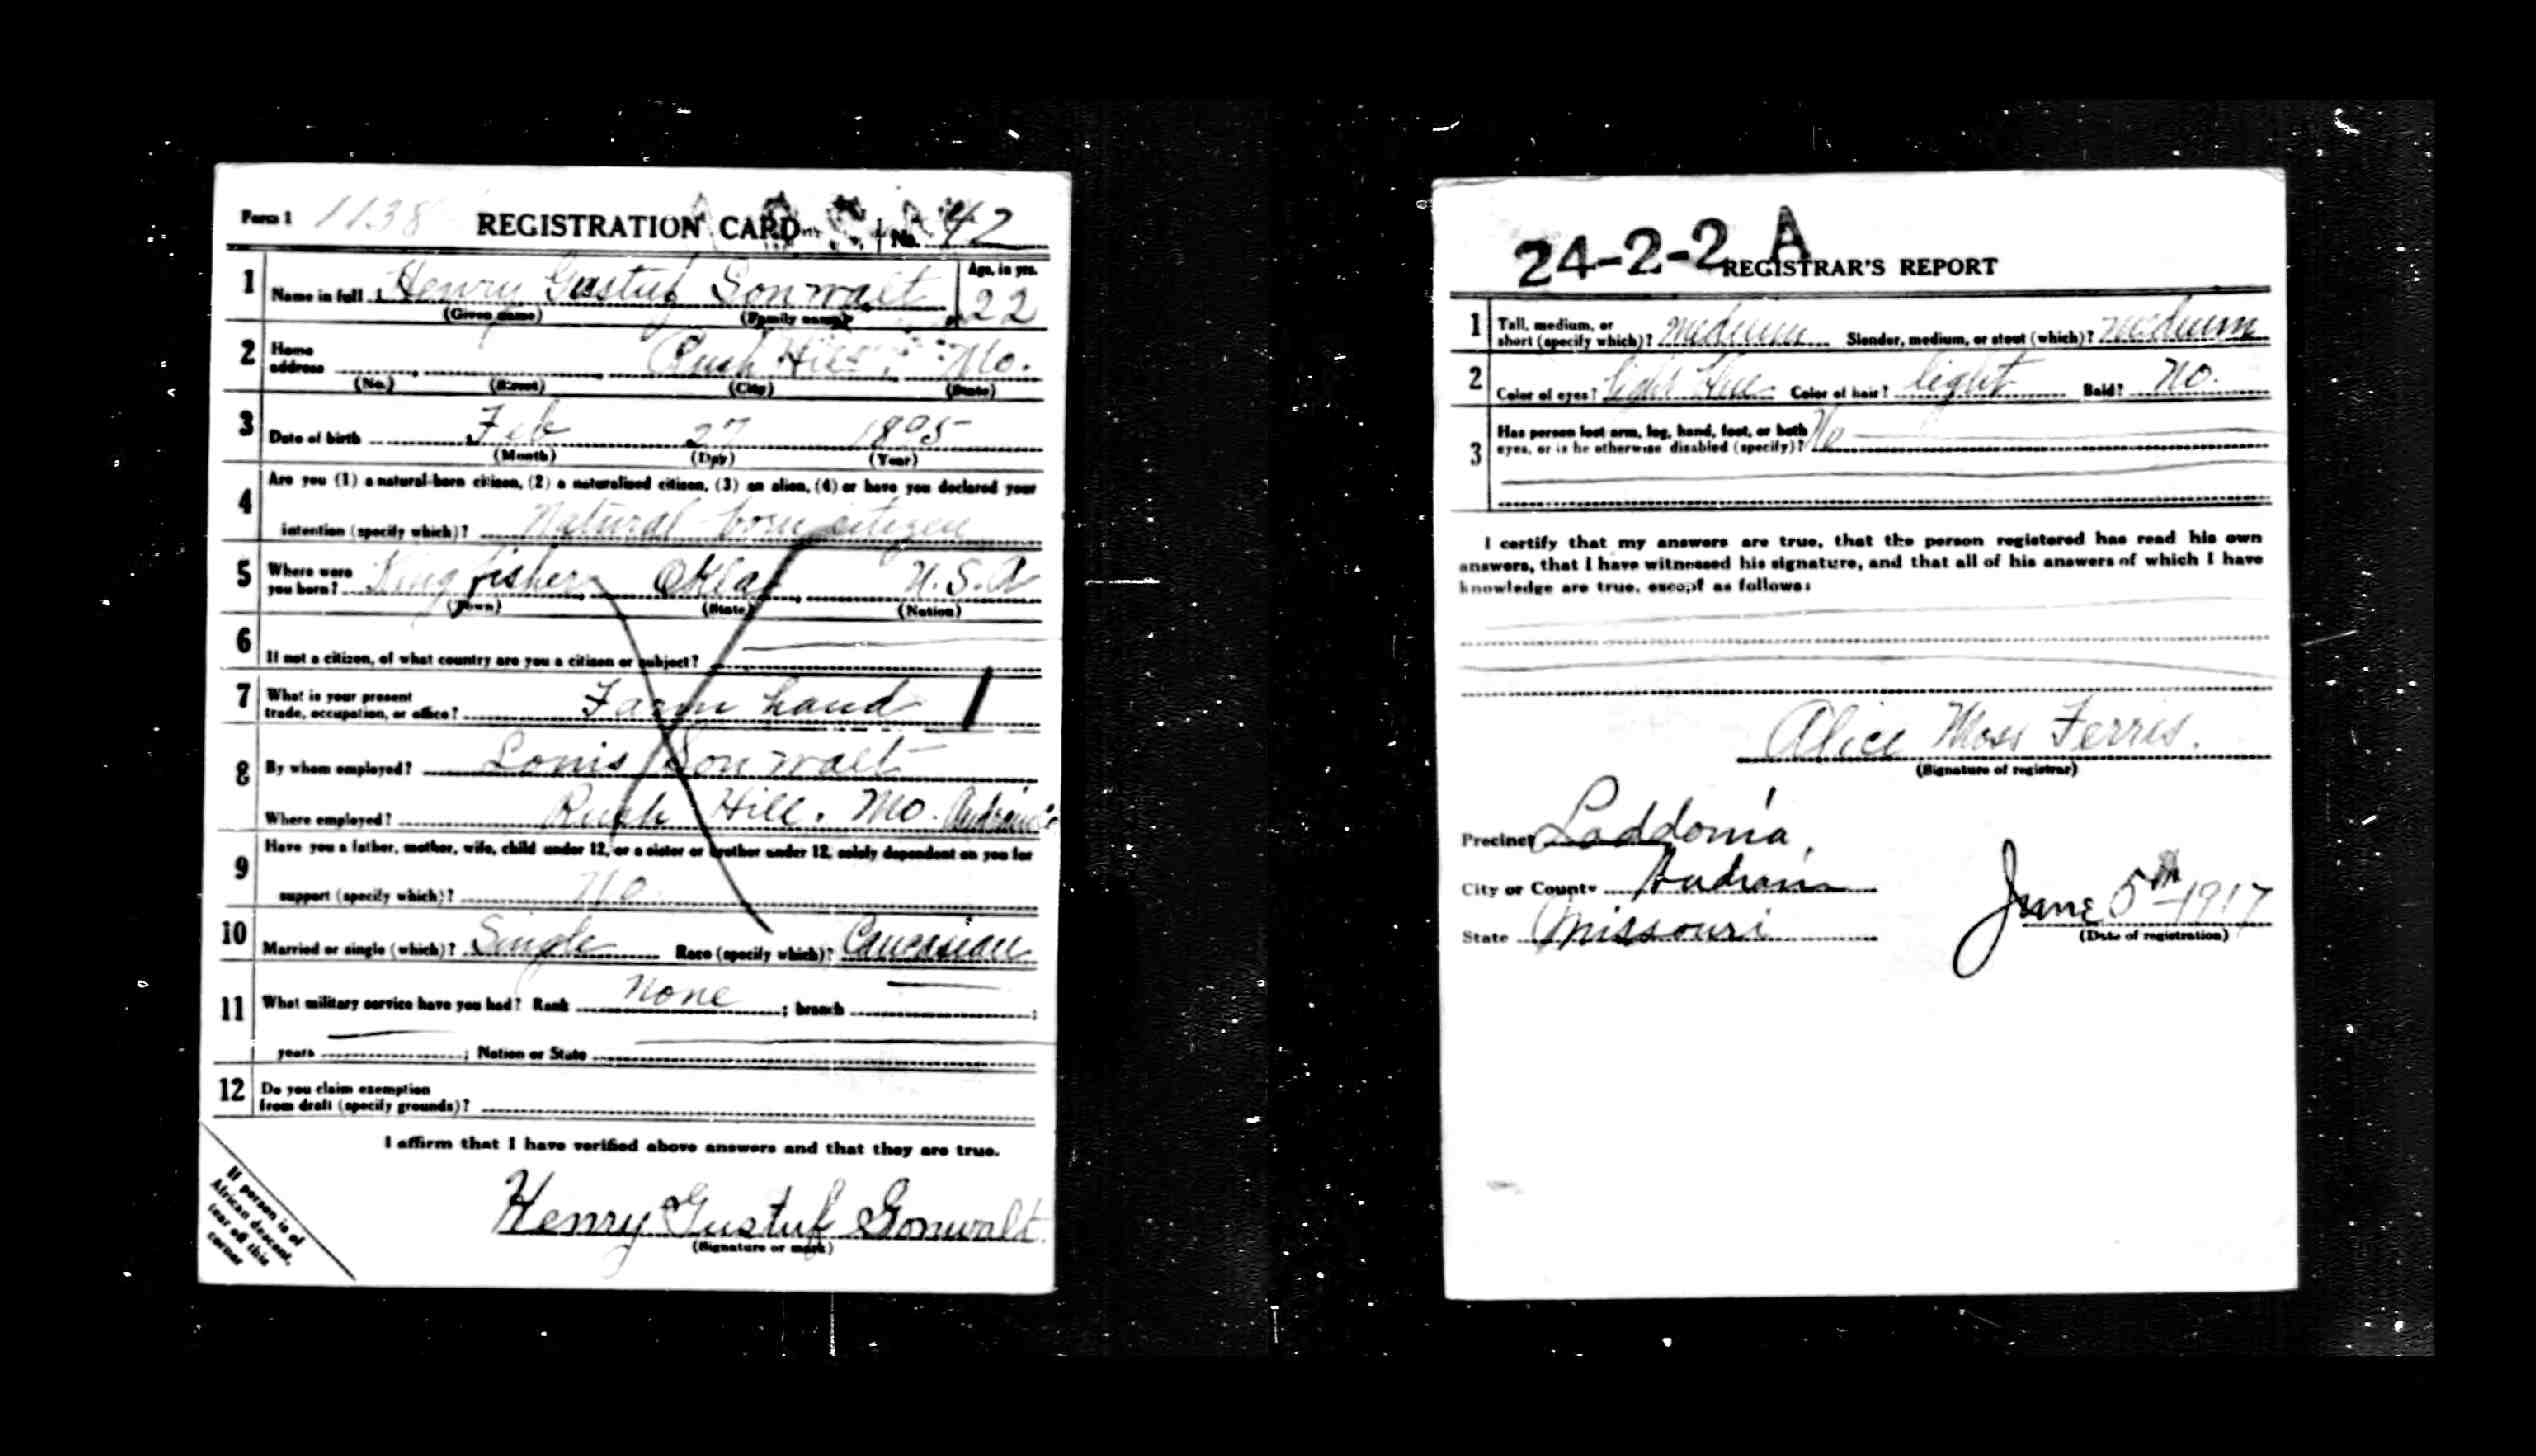 Form 1 1138 REGISTRATION CARD No. 42
1 Name in full Henry Gustuf Sonwalt Age, in yrs. 22
(Given name) (Family name)
2 Home address Rush Hill, Mo.
(No.) (Street) (City) (State)
3 Date of birth Feb 27 1895
(Month) (Day) (Year)
4 Are you (1) a natural-born citizen, (2) a naturalized citizen, (3) an alien, (4) or have you declared your
intention (specify which)? Natural-born citizen
5 Where were you born? Kingfisher, Okla, U.S.A
(Town) (State) (Nation)
6 If not a citizen, of what country are you a citizen or subject?
7 What is your present
trade, occupation, or office? Farm hand
8 By whom employed? Louis Sonwalt
Where employed? Rush Hill. Mo.
9 Have you a father, mother, wife, child under 12, or a sister or brother under 12, solely dependent on you for
support (specify which)? No
10 Married or single (which)? Single Race (specify which)? Caucasian
11 What military service have you had? Rank None ; branch ;
years ; Nation or State
12 Do you claim exemption
from draft (specify grounds)?
I affirm that I have verified above answers and that they are true.
Henry Gustuf Sonwalt
(Signature or mark)
If person is of
African descent,
tear off this
corner
24-2-2 A
REGISTRAR'S REPORT
1 Tall, medium, or
short (specify which)? medium Slender, medium, or stout (which)? medium
2 Color of eyes? light blue Color of hair? light Bald? No.
3 Has person lost arm, leg, hand, foot, or both
eyes, or is he otherwise disabled (specify)? No
I certify that my answers are true, that the person registered has read his own
answers, that I have witnessed his signature, and that all of his answers of which I have
knowledge are true, except as follows:
Alice Moss Ferris.
(Signature of registrar)
Precinct Laddonia,
City or County Audrain
State Missouri
June 5th 1917
(Date of registration)